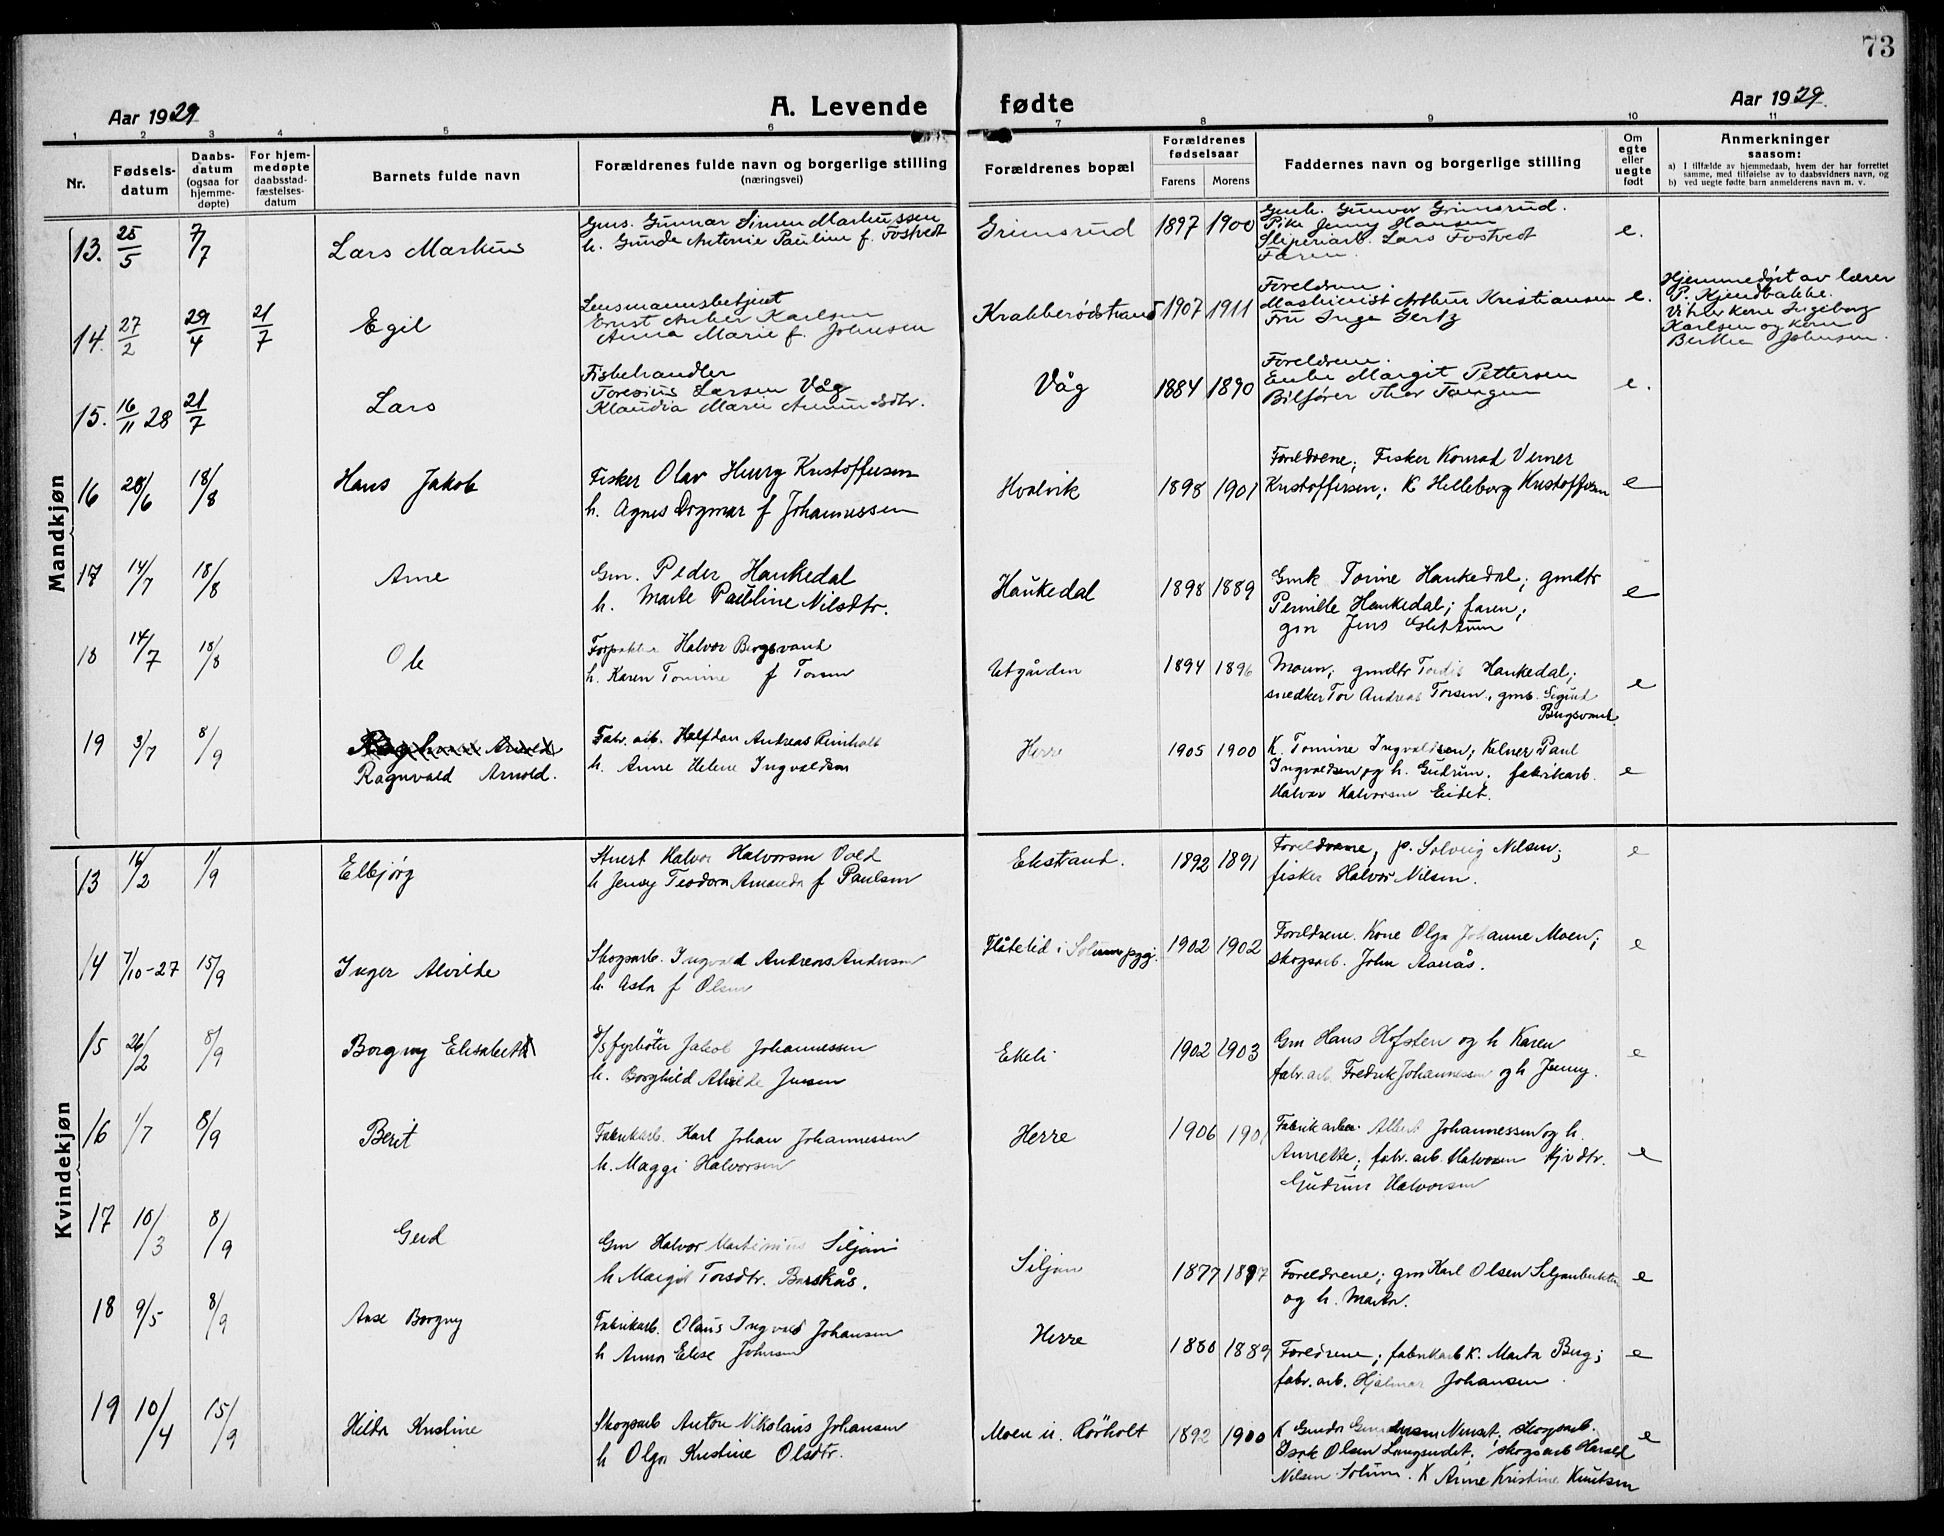 73
Aar 1929
A. Levende
fødte
Aar 1929.
1 2 3 4 5 6 7 8 9 10 11
Nr.
Fødsels-
datum
Daabs-
datum
(ogsaa for
hjemme-
døpte)
For hjem-
medøpte
daabsstad-
fæstelses-
datum
Barnets fulde navn
Forældrenes fulde navn og borgerlige stilling
(næringsvei)
Forældrenes bopæl
Forældrenes
fødselsaar
Farens Morens
Faddernes navn og borgerlige stilling
Om
egte
eller
uegte
født
Anmerkninger
saasom:
a) I tilfælde av hjemmedaab, hvem der har forrettet
samme, med tilføielse av to daabsvidners navn, og
b) ved uegte fødte barn anmelderens navn m. v.
Mandkjøn
13. 25/5 7/7 Lars Markus
Gms. Gunnar Simen Markussen
h. Gunda Antonie Pauline f. Fostvedt
Grimsrud 1897 1900
Gmk. Gunvor Grimsrud.
Pike Jenny Hansen
Sliperiarb. Lars Fostvedt
Faren.
e.
14. 27/2 29/4 21/7 Egil
Lensmannsbetjent
Ernst Anker Karlsen
Anna Marie f. Johnsen
Krabberødstrand 1907 1911
Foreldrene.
Maskinist Arthur Kristiansen
Fru Inga Gertz
e.
Hjemmedøpt av lærer
P. Kjendbakke.
Vitner kone Ingeborg
Karlsen og kone
Berthe Johnsen.
15. 16/11 28 21/7 Lars
Fiskehandler
Toresius Larsen Våg
Klaudia Marie Amundsdtr.
Våg 1884 1890
Foreldrene.
Enke Margit Pettersen
Bilfører Thor Tangen
e.
16 28/6 18/8 Hans Jakob
Fisker Olav Henry Kristoffersen
h. Agnes Dagmar f Johannessen
Hvalvik 1898 1901
Foreldrene; Fisker Konrad Verner
Kristoffersen; K Helleborg Kristoffersen
e
17 14/7 18/8 Arne
Gm. Peder Haukedal
h. Marte Pauline Nilsdtr.
Haukedal 1898 1889
Gmk Torine Haukedal; gmdtr
Pernille Haukedal; faren;
gm Jens
e
18 14/7 18/8 Ole
Forpakter Halvor Bergsvand
h. Karen Tomine f Torsen
Utgården 1894 1896
Moren; gmdtr Tordis Haukedal;
snedker Tor Andreas Torsen, gms. Sigurd
Bergsvand
e
19 3/7 8/9
Ragnvald Arnold.
Fabr. arb. Halfdan Andreas Reinholt
h. Anne Helene Ingvaldsen
Herre 1905 1900
K. Tomine Ingvaldsen; Kelner Paul
Ingvaldsen og h. Gudrun; fabrikarb.
Halvor Halvorsen Eidet.
e
Kvindekjøn
13 16/2 1/9 Elbjørg
Stuert Halvor Halvorsen Vold
h Jenny Teodora Amanda f Paulsen
Ekstrand. 1892 1891
Foreldrene; p. Solveig Nilsen;
fisker Halvor Nilsen.
e
14 7/10-27 15/9 Inger Alvilde
Skogsarb. Ingvald Andreas Andersen
h. Asta f Olsen
Flåtelid i Solum pgj. 1902 1902
Foreldrene. Kone Olga Johanne Moen;
skogsarb. John Aarås.
e
15 26/2 8/9 Borgny Elisabeth
d/s fyrbøter Jakob Johannessen
h. Borghild Alvilde Jensen
Ekeli 1902 1903
Gm Hans Hofsten og h Karen
fabr. arb. Fredrik Johannessen og h Jenny.
e
16 1/7 8/9 Berit
Fabrikarb. Karl Johan Johannessen
h. Maggi Halvorsen
Herre 1906 1901
Fabrikarbei. Albert Johannessen og h.
Annette; fabr. arb. Halvorsen
Gudrun Halvorsen
e
17 10/3 8/9 Gerd
Gm Halvor Martinius Siljan
h Margit Torsdtr. Barskås.
Siljan 1877 1897
Foreldrene; gm Karl Olsen Siljanbukten
og h. Marta.
e
18 9/5 8/9 Aase Borgny
Fabrikarb. Olaus Ingvald Johansen
h Anna Elise Johnsen
Herre 1880 1889
Foreldrene; fabrikarb K. Marta Berg;
fabr. arb. Hjalmar Johansen.
e
19 10/4 15/9 Hilda Kristine
Skogsarb Anton Nikolaus Johansen
h Olga Kristine Olsdtr.
Moen u. Rörholt 1892 1900
K Gunda Gundersen Nenset; Skogsarb.
Isak Olsen Langsundet; skogsarb Harald
Nilsen Solum. K Anne Kristine Knutsen
e